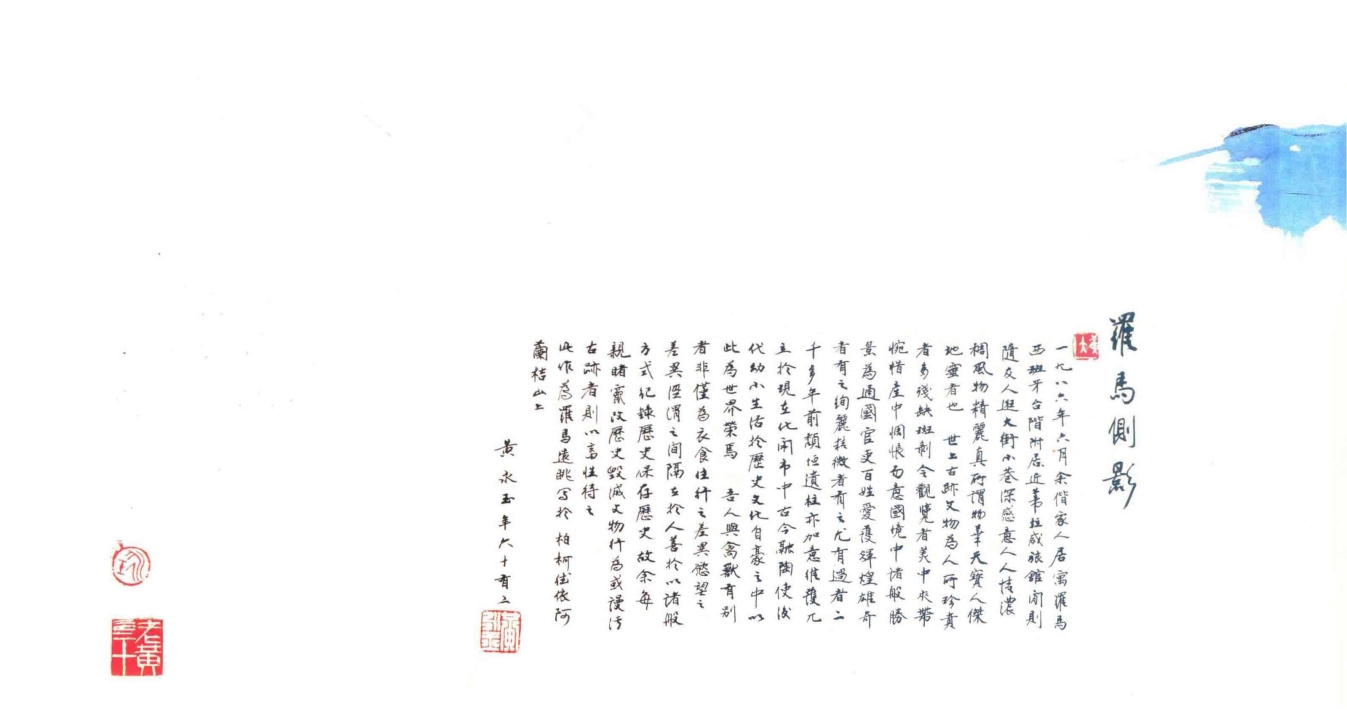 羅馬側影
一九八六年六月余偕家人居寓羅馬
西班牙台階附居近第拉威旅館閑則
隨友人逛大街小巷深感意人人情濃
稠風物精麗真所謂物華天寶人傑
地靈者也 世上古跡文物為人所珍貴
者多殘缺斑剝令觀覽者美中夾帶
惋惜產中惆悵而意國境中諸般勝
景為通國官吏百姓愛護輝煌雄奇
者有之絢麗 微者有之尤有過者二
千多年前頹垣遺柱亦加意維護兀
立於現在化鬧市中古今融陶使後
代幼小生活於歷史文化自豪之中以
此為世界榮焉 吾人與禽獸有別
者非僅為衣食住行之差異慾望之
差異涇渭之間隔在於人善於以諸般
方式紀錄歷史保存歷史 故余每
親睹竄改歷史毀滅文物行為或謾污
古跡者則以畜性待之
此作為羅馬遠眺寫於 柏柯佳依阿
蘭桔山上
黃永玉年六十有二
老黃